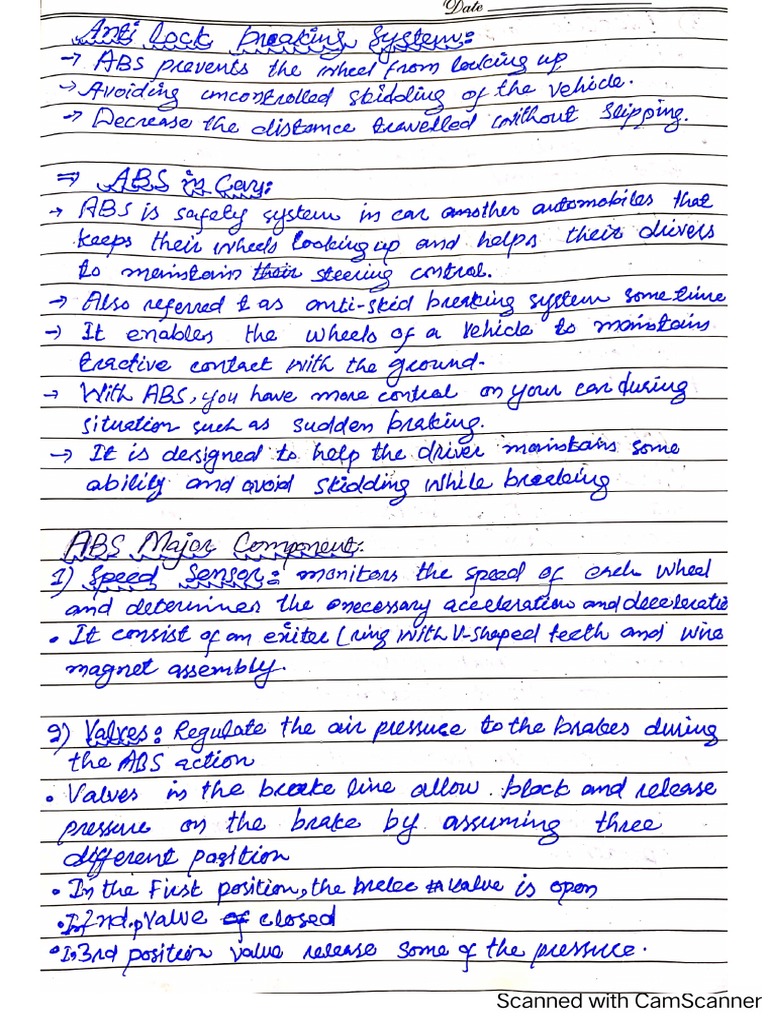 Date
Anti lock breaking system:
→ ABS prevents the wheel from locking up
→ Avoiding uncontrolled skidding of the vehicle.
→ Decrease the distance travelled without slipping.
⇒ ABS in Car:
→ ABS is safety system in car another automobiles that
keeps their wheels locking up and helps their drivers
to maintain their steering control.
→ Also referred t as anti-skid breaking system some time
→ It enables the wheels of a vehicle to maintains
tractive contact with the ground.
→ With ABS, you have more control on your car during
situation such as sudden braking.
→ It is designed to help the driver maintains some
ability and avoid skidding while breaking
ABS Major Component:
1) Speed Sensor: monitors the speed of each wheel
and determines the necessary acceleration and deceleratio
• It consist of an exiter (ring with V-shaped teeth and wire
magnet assembly.
2) Valves: Regulate the air pressure to the brakes during
the ABS action
• Valves in the brake line allow. block and release
pressure on the brake by assuming three
different position
• In the First position, the valve is open
• 2nd. valve closed
• 3rd position valve release some of the pressure.
Scanned with CamScanner